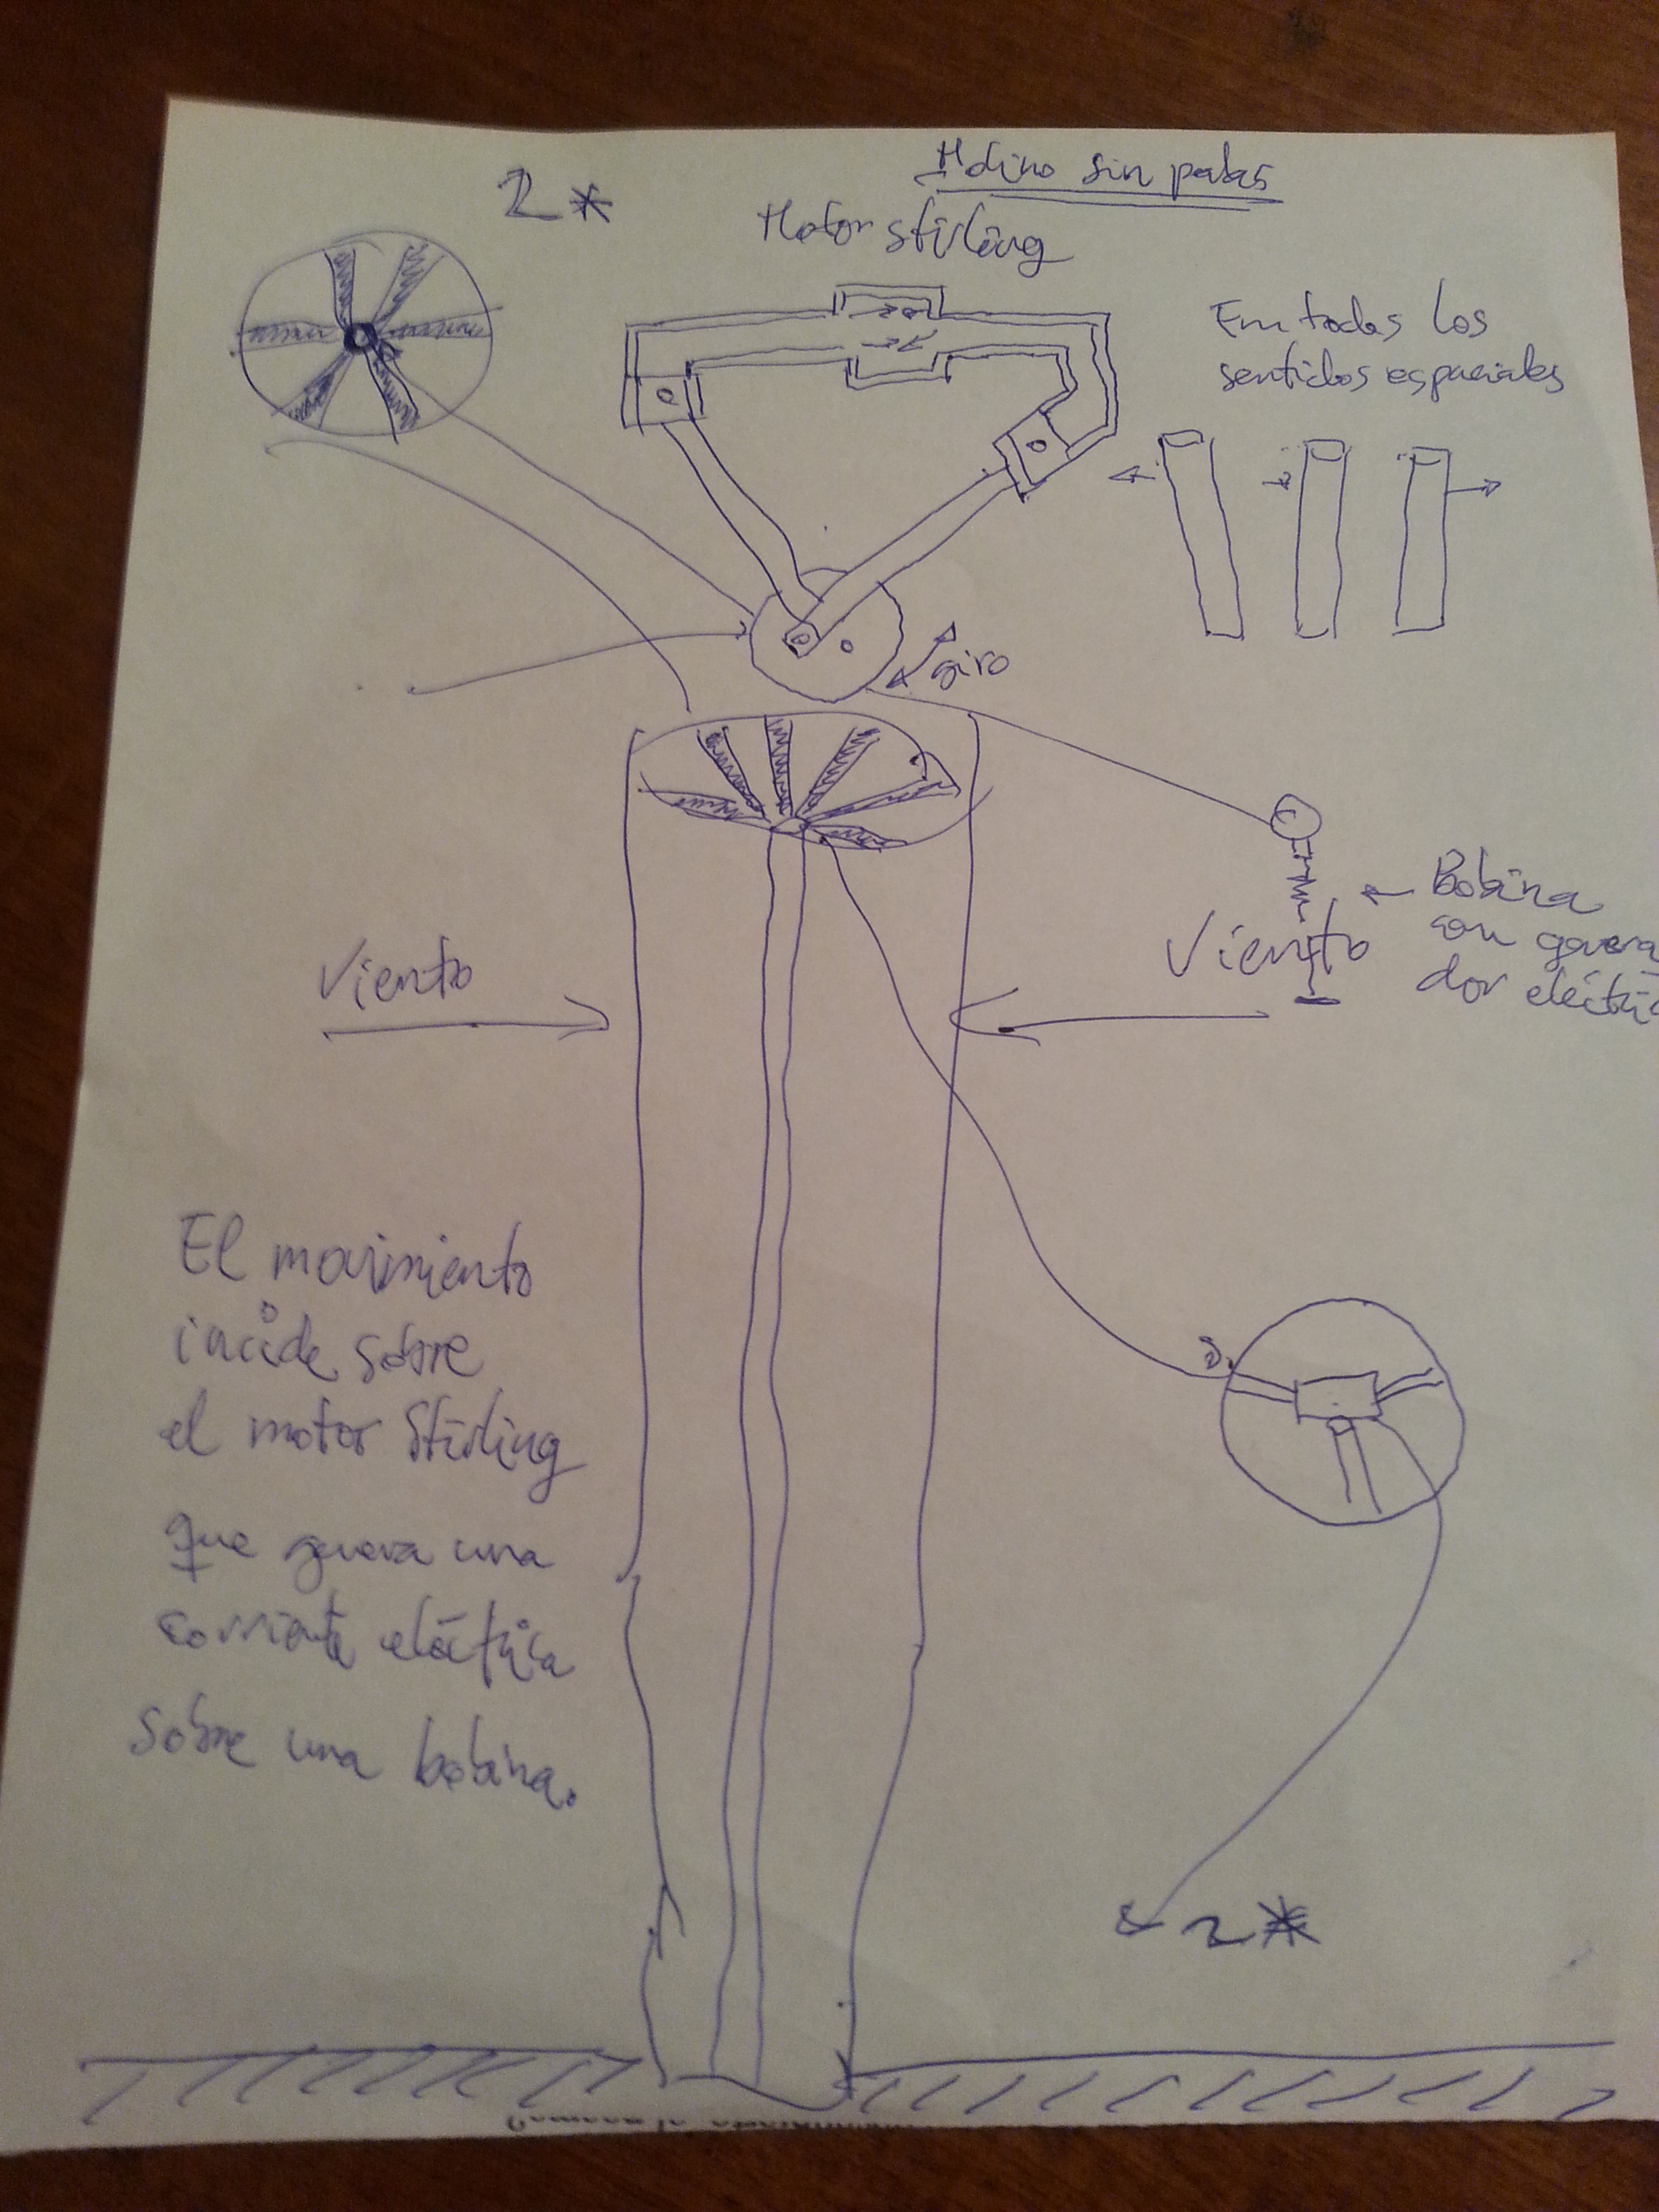 2*
Molino sin palas
Motor stirling
En todos los
sentidos espaciales
giro
Bobina
con genera
dor eléctric
Viento
Viento
El movimiento
incide sobre
el motor Stirling
que genera una
corriente eléctrica
sobre una bobina.
2*